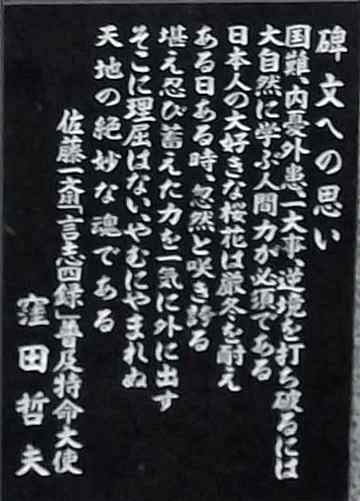 碑文への思い
国難、内憂外患、一大事、逆境を打ち破るには
大自然に学ぶ人間力が必須である
日本人の大好きな桜花は厳冬を耐え
ある日ある時、忽然と咲き誇る
堪え忍び蓄えた力を一気に外に出す
そこに理屈はない、やむにやまれぬ
天地の絶妙な魂である
佐藤一斎「言志四録」普及特命大使
窪田哲夫